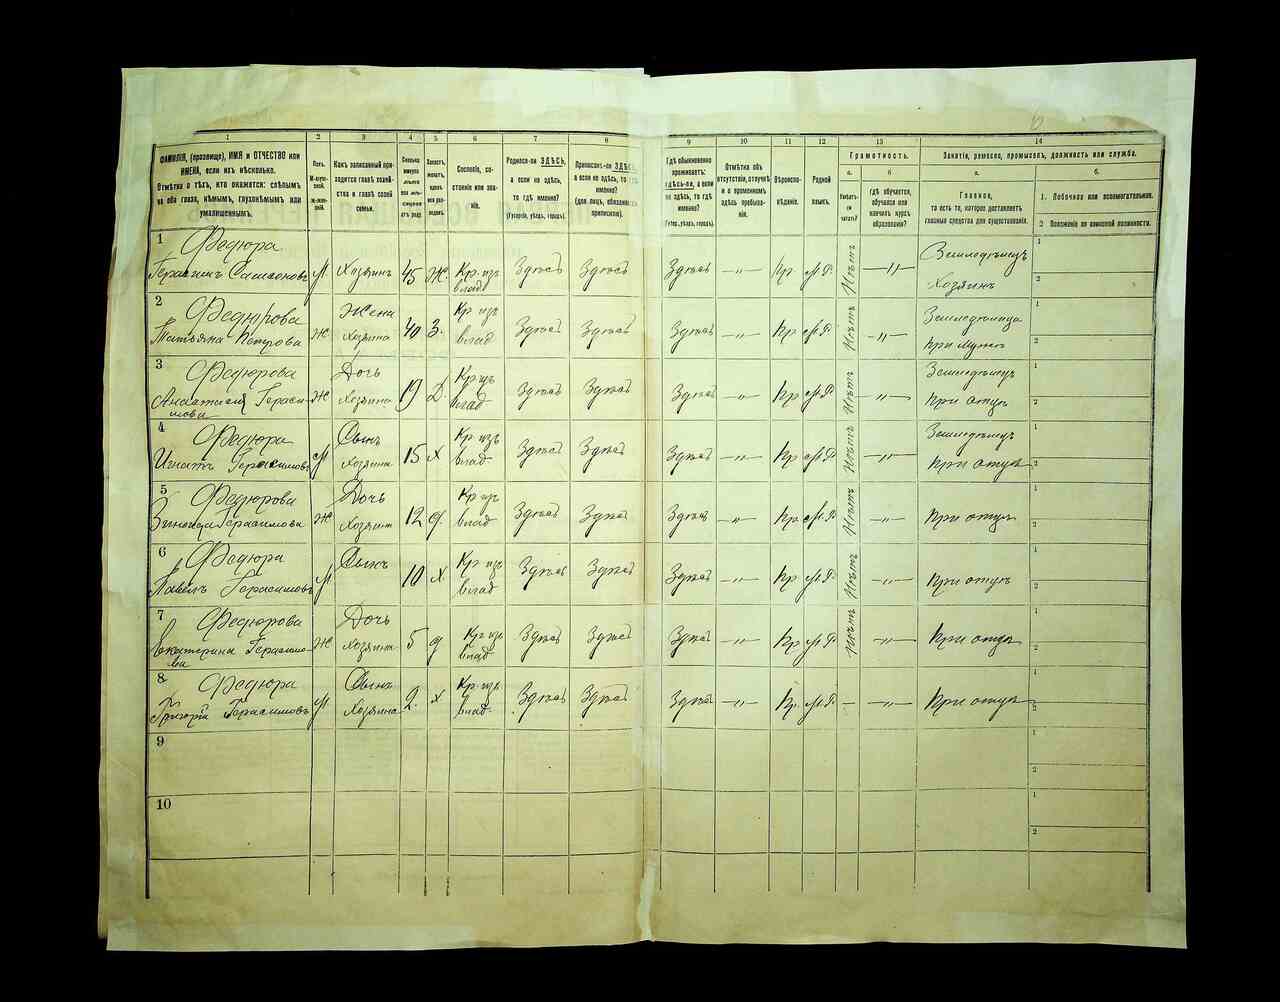 1 2 3 4 5 6 7 8 9 10 11 12 13 14
ФАМИЛІЯ, (прозвище), ИМЯ и ОТЧЕСТВО или ИМЕНА, если ихъ нѣсколько.
Отмѣтка о тѣхъ, кто окажется: слѣпымъ на оба глаза, нѣмымъ, глухонѣмымъ или умалишеннымъ.
Полъ.
М-мужской.
Ж-женскій.
Какъ записанный приходится главѣ хозяйства и главѣ своей семьи.
Сколько минуло лѣтъ
Холостъ, женатъ, вдовъ
Сословіе, состояніе или званіе.
Родился-ли ЗДѢСЬ, а если не здѣсь, то гдѣ именно?
(Губернія, уѣздъ, городъ).
Приписанъ-ли ЗДѢСЬ, а если не здѣсь, то гдѣ именно?
Гдѣ обыкновенно проживаетъ: здѣсь-ли, а если не здѣсь, то гдѣ именно?
(Губер., уѣздъ, городъ).
Отмѣтка объ отсутствіи, отлучкѣ и о временномъ здѣсь пребываніи.
Вѣроисповѣданіе.
Родной языкъ.
Грамотность.
а. б.
Умѣетъ-ли читать?
Гдѣ обучается, обучался или кончилъ курсъ образованія?
Занятіе, ремесло, промыселъ, должность или служба.
а. б.
Главное,
то есть то, которое доставляетъ главныя средства для существованія.
1. Побочное или вспомогательное.
2 Положеніе по воинской повинности.
1 Федюра
Герасимъ Самсоновъ М Хозяинъ 45 Ж. Кр. из влад Здѣсь Здѣсь Здѣсь —"— Пр. М.Р. Нѣтъ —"— Земледѣлецъ Хозяинъ 1 2
2 Федюрова
Татьяна Петрова Ж Жена хозяина 40 З. Кр из влад Здѣсь Здѣсь Здѣсь —"— Пр М.Р. Нѣтъ —"— Земледѣлица При мужѣ 1 2
3 Федюрова
Анастасия Герасимова Ж Дочь Хозяина 19 Д. Кр из влад Здѣсь Здѣсь Здѣсь —"— Пр М.Р. Нѣтъ —"— Земледѣлецъ При отцѣ 1 2
4 Федюра
Игнатъ Герасимовъ М Сынъ Хозяина 15 х Кр из влад. Здѣсь Здѣсь Здѣсь —"— Пр М.Р. Нѣтъ —"— Земледѣлецъ При отцѣ 1 2
5 Федюрова
Зинаида Герасимова Ж Дочь Хозяина 12 д. Кр из влад Здѣсь Здѣсь Здѣсь —"— Пр М.Р. Нѣтъ —"— При отцѣ 1 2
6 Федюра
Павелъ Герасимовъ М Сынъ 10 х. Кр. из влад Здѣсь Здѣсь Здѣсь —"— Пр М.Р. Нѣтъ —"— При отцѣ 1 2
7 Федюрова
Екатерина Герасимова Ж Дочь Хозяина 5 д Кр из влад Здѣсь Здѣсь Здѣсь —"— Пр М.Р. Нѣтъ —"— При отцѣ 1 2
8 Федюра
Григорій Герасимовъ М Сынъ Хозяина 2. х Кр. из влад. Здѣсь Здѣсь Здѣсь —"— Пр. М.Р. — —"— При отцѣ 1 2
9 1 2
10 1 2